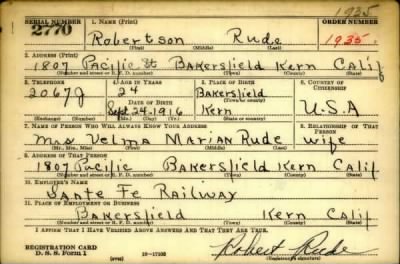 1935
SERIAL NUMBER 1. NAME (Print) ORDER NUMBER
2770 Robertson Rude 1935
(First) (Middle) (Last)
2. ADDRESS (Print)
1807 Pacific St Bakersfield Kern Calif
(Number and street or R. F. D. number) (Town) (County) (State)
3. TELEPHONE 4. AGE IN YEARS 5. PLACE OF BIRTH 6. COUNTRY OF CITIZENSHIP
2067J 24 Bakersfield
DATE OF BIRTH (Town or county)
Sept. 24-1916 Kern U.S.A
(Exchange) (Number) (Mo.) (Day) (Yr.) (State or country)
7. NAME OF PERSON WHO WILL ALWAYS KNOW YOUR ADDRESS 8. RELATIONSHIP OF THAT PERSON
Mrs Velma Marian Rude wife
(Mr., Mrs., Miss) (First) (Middle) (Last)
9. ADDRESS OF THAT PERSON
1807 Pacific Bakersfield Kern Calif
(Number and street or R. F. D. number) (Town) (County) (State)
10. EMPLOYER'S NAME
Sante Fe Railway
11. PLACE OF EMPLOYMENT OR BUSINESS
Bakersfield Kern Calif
(Number and street or R. F. D. number) (Town) (County) (State)
I AFFIRM THAT I HAVE VERIFIED ABOVE ANSWERS AND THAT THEY ARE TRUE.
REGISTRATION CARD
D. S. S. Form 1 16-17105 Robert Rude
(Registrant's signature)